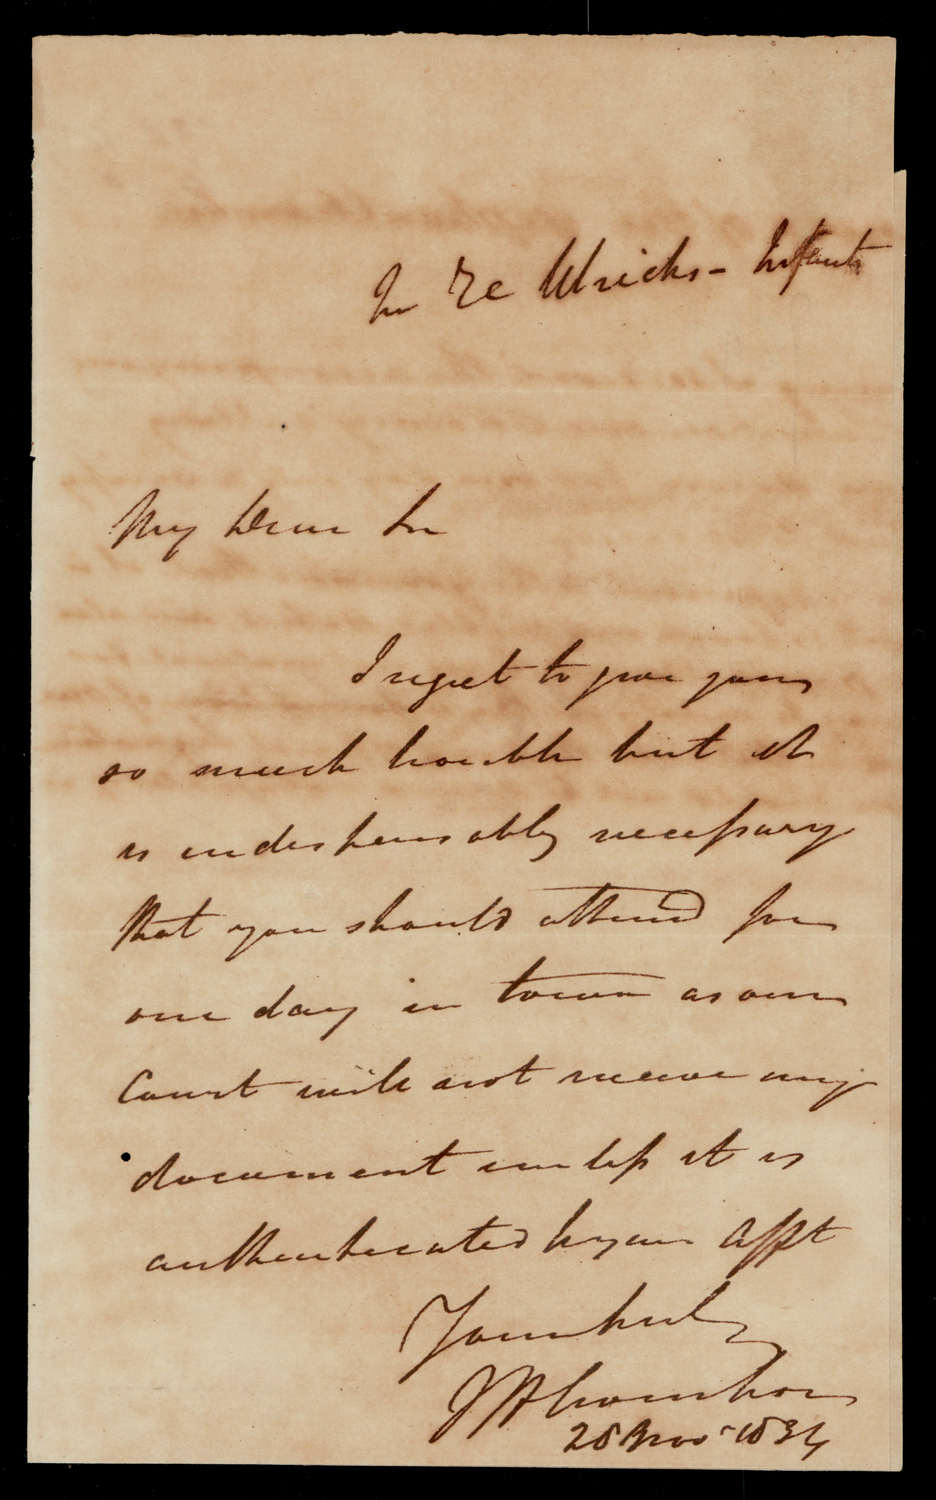 In Re Ulricks - Infants
My Dear Sir
I regret to give you
so much trouble but it
is indispensably necessary
that you should attend for
one day in town as our
Court will not receive any
document unless it is
authenticated by your Afft
Yours truly
28 Nov 1834